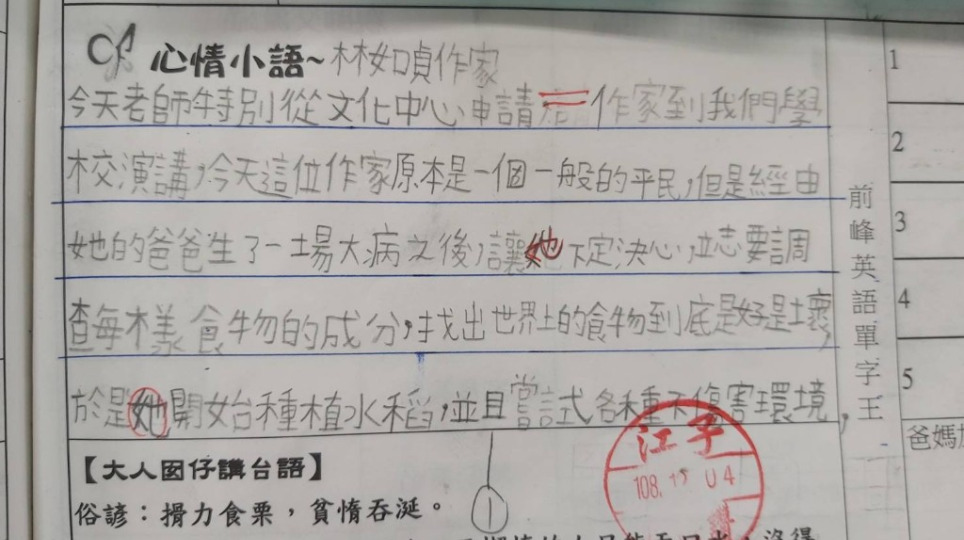 心情小語~林如貞作家
今天老師特別從文化中心申請作家到我們學
校演講,今天這位作家原本是一個一般的平民,但是經由
她的爸爸生了一場大病之後,讓她下定決心,立志要調
查每樣食物的成分,找出世界上的食物到底是好是壞,
於是她開始種植水稻,並且嘗試各種不傷害環境,
①
【大人囡仔講台語】
俗諺:搰力食栗,貧惰吞涎。
江子
108.12.04
前峰英語單字王
1
2
3
4
5
爸媽